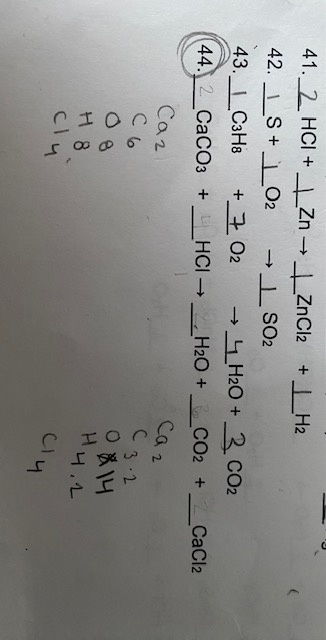 41. 2 HCl + 1 Zn → 1 ZnCl2 + 1 H2
42. 1 S + 1 O2 → 1 SO2
43. 1 C3H8 + 7 O2 → 4 H2O + 3 CO2
44. 2 CaCO3 + 4 HCl → __ H2O + __ CO2 + 2 CaCl2
Ca 2 Ca 2
C 6 C 3.2
O 8 O 14
H 8 H 4.2
Cl 4 Cl 4